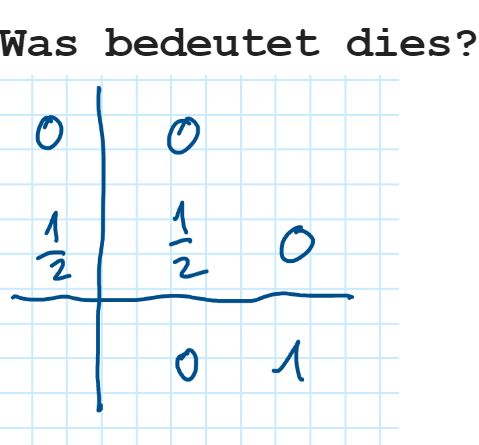 Was bedeutet dies?
0 0
1/2 1/2 0
0 1